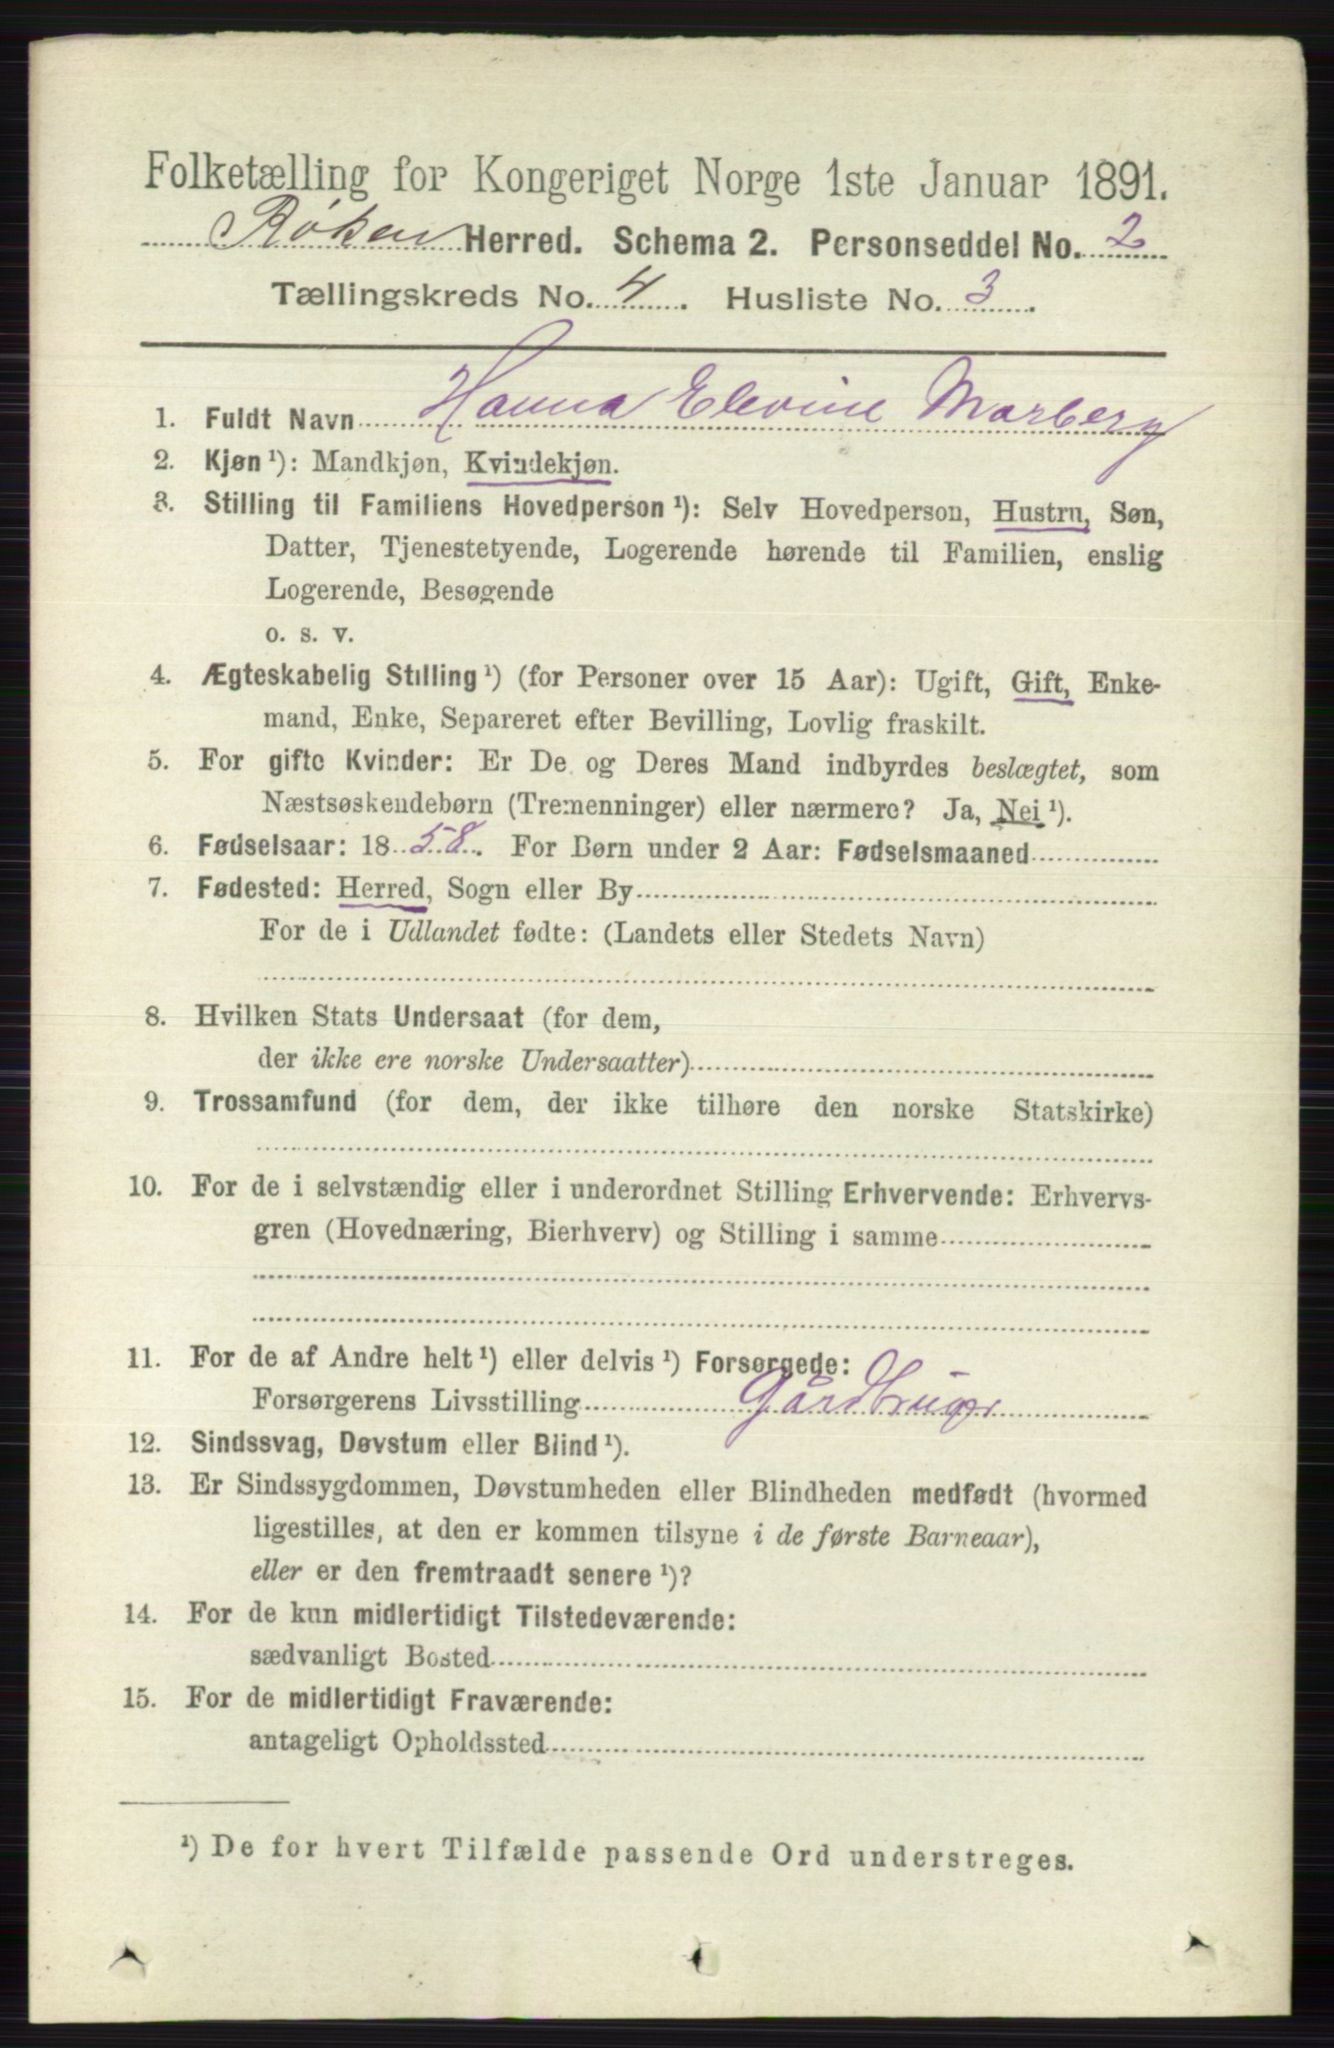 Folketælling for Kongeriget Norge 1ste Januar 1891.
Røken Herred. Schema 2. Personseddel No. 2
Tællingskreds No. 4. Husliste No. 3.
1. Fuldt Navn Hanna Elevine Marberg
2. Kjøn ¹): Mandkjøn, Kvindekjøn.
3. Stilling til Familiens Hovedperson ¹): Selv Hovedperson, Hustru, Søn,
Datter, Tjenestetyende, Logerende hørende til Familien, enslig
Logerende, Besøgende
o. s. v.
4. Ægteskabelig Stilling ¹) (for Personer over 15 Aar): Ugift, Gift, Enke-
mand, Enke, Separeret efter Bevilling, Lovlig fraskilt.
5. For gifte Kvinder: Er De og Deres Mand indbyrdes beslægtet, som
Næstsøskendebørn (Tremenninger) eller nærmere? Ja, Nei ¹).
6. Fødselsaar: 1858. For Børn under 2 Aar: Fødselsmaaned
7. Fødested: Herred, Sogn eller By
For de i Udlandet fødte: (Landets eller Stedets Navn)
8. Hvilken Stats Undersaat (for dem,
der ikke ere norske Undersaatter)
9. Trossamfund (for dem, der ikke tilhøre den norske Statskirke)
10. For de i selvstændig eller i underordnet Stilling Erhvervende: Erhvervs-
gren (Hovednæring, Bierhverv) og Stilling i samme
11. For de af Andre helt ¹) eller delvis ¹) Forsørgede:
Forsørgerens Livsstilling Gårdbruger
12. Sindssvag, Døvstum eller Blind ¹).
13. Er Sindssygdommen, Døvstumheden eller Blindheden medfødt (hvormed
ligestilles, at den er kommen tilsyne i de første Barneaar),
eller er den fremtraadt senere ¹)?
14. For de kun midlertidigt Tilstedeværende:
sædvanligt Bosted
15. For de midlertidigt Fraværende:
antageligt Opholdssted
¹) De for hvert Tilfælde passende Ord understreges.